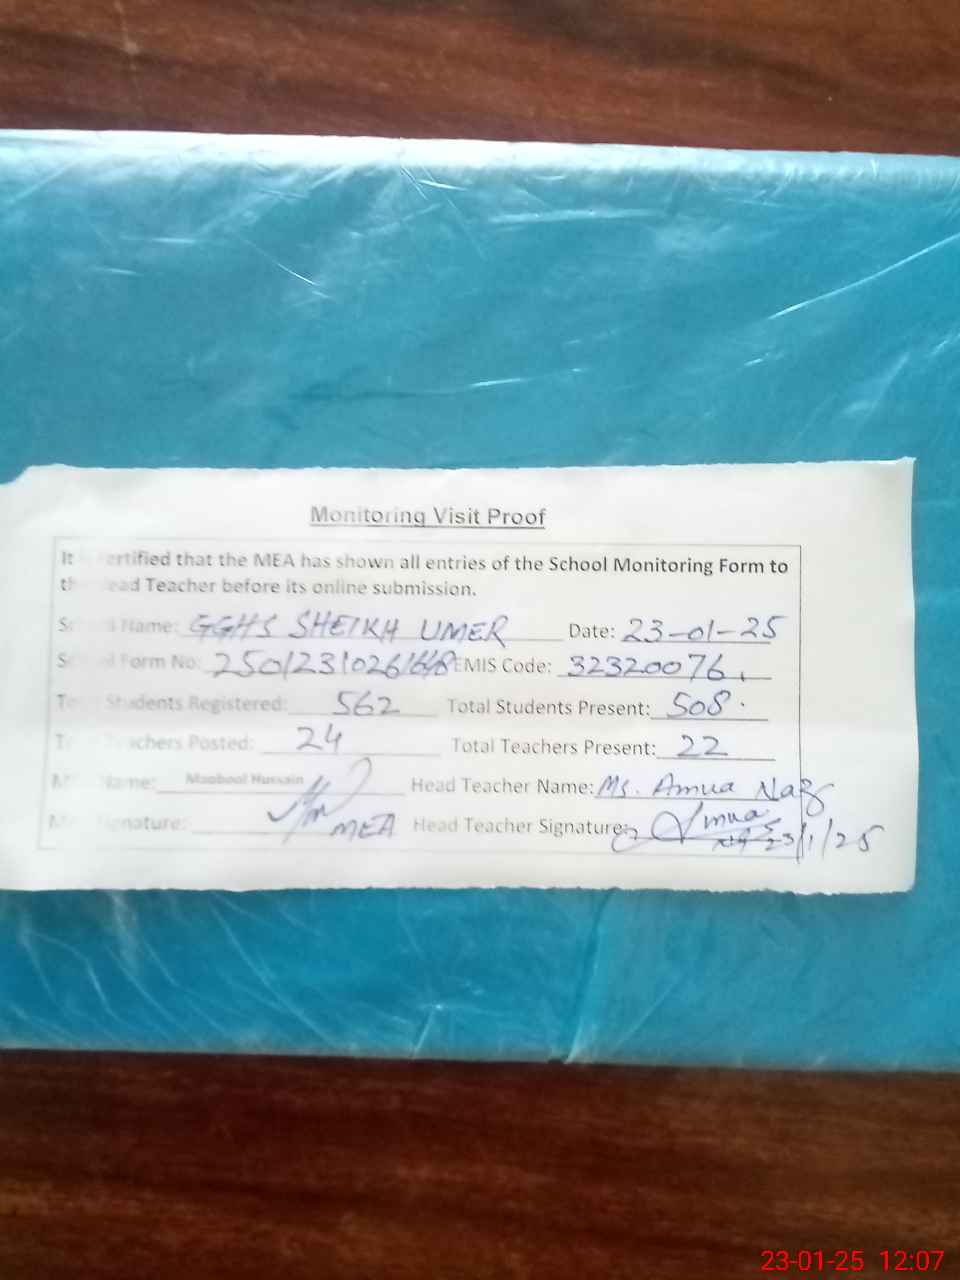 Monitoring Visit Proof
It ertified that the MEA has shown all entries of the School Monitoring Form to
th ead Teacher before its online submission.
Name: GGHS SHEIKH UMER Date: 23-01-25
Form No: EMIS Code: 32320076
Students Registered: 562 Total Students Present: 508
Posted: 24 Total Teachers Present: 22
Name: Maqbool Hussain Head Teacher Name: Ms. Amua Naz
MEA Head Teacher Signature: 23/1/25
23-01-25 12:07